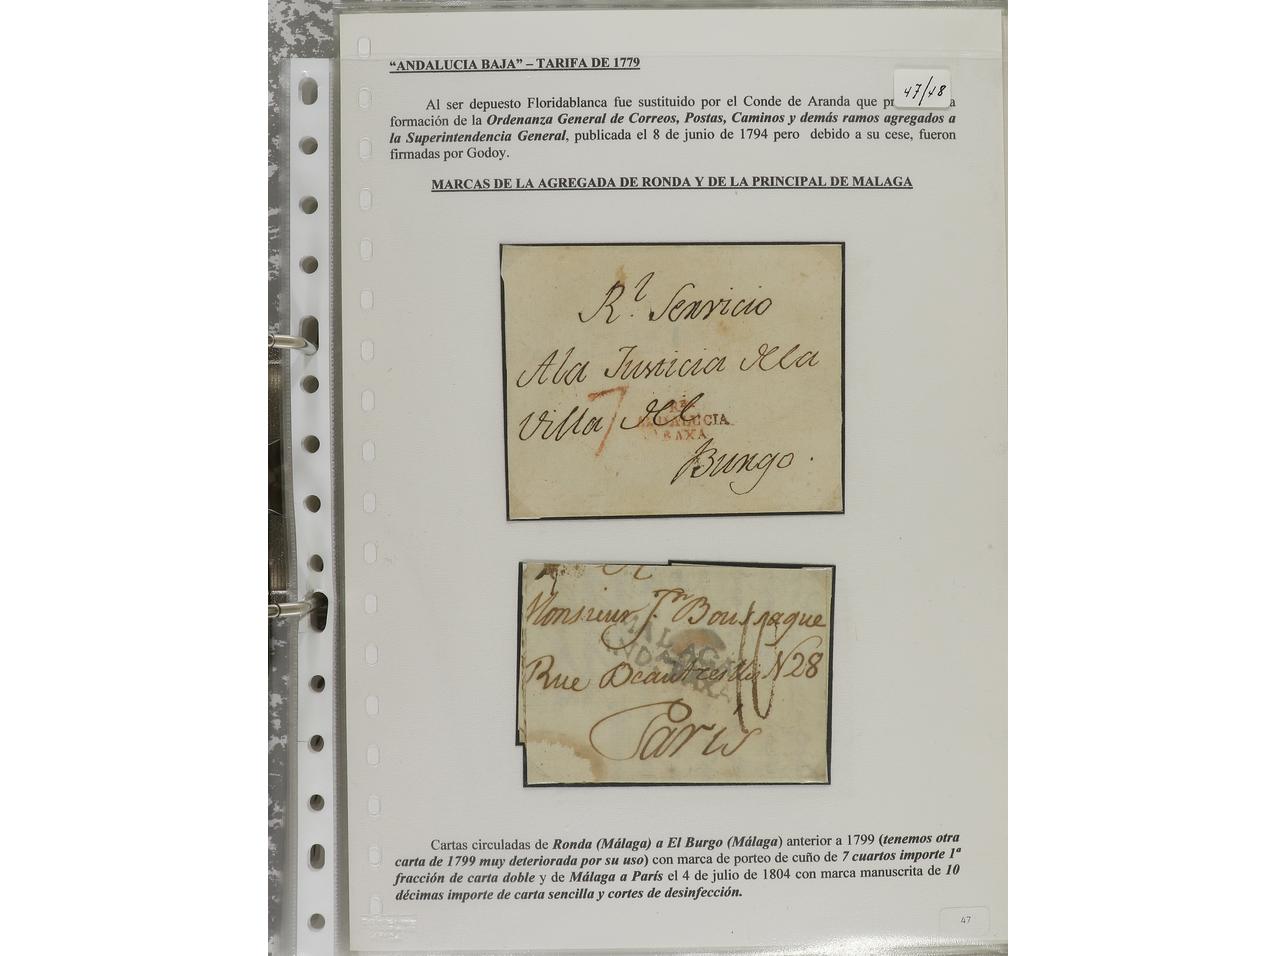 “ANDALUCIA BAJA” – TARIFA DE 1779
47/48
Al ser depuesto Floridablanca fue sustituido por el Conde de Aranda que
formación de la Ordenanza General de Correos, Postas, Caminos y demás ramos agregados a
la Superintendencia General, publicada el 8 de junio de 1794 pero debido a su cese, fueron
firmadas por Godoy.
MARCAS DE LA AGREGADA DE RONDA Y DE LA PRINCIPAL DE MALAGA
Rl. Servicio
Ala Justicia dela
Villa del
7
ANDALUCIA
BAXA
Burgo.
Monsieur Jn. Boussaque
MALAGA
Rue N28
10
Paris
Cartas circuladas de Ronda (Málaga) a El Burgo (Málaga) anterior a 1799 (tenemos otra
carta de 1799 muy deteriorada por su uso) con marca de porteo de cuño de 7 cuartos importe 1ª
fracción de carta doble y de Málaga a París el 4 de julio de 1804 con marca manuscrita de 10
décimas importe de carta sencilla y cortes de desinfección.
47